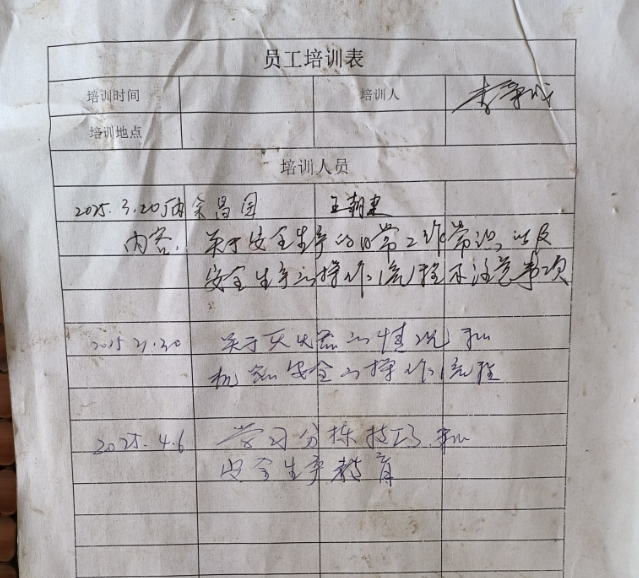 员工培训表
培训时间 培训人
培训地点
培训人员
2025.3.20 昌国 王朝建
内容: 关于安全生产的日常工作常识以及
安全生产的操作流程及注意事项
关于灭火器的情况和
机器安全的操作流程
2025.4.6 学习分拣技巧和
安全生产教育